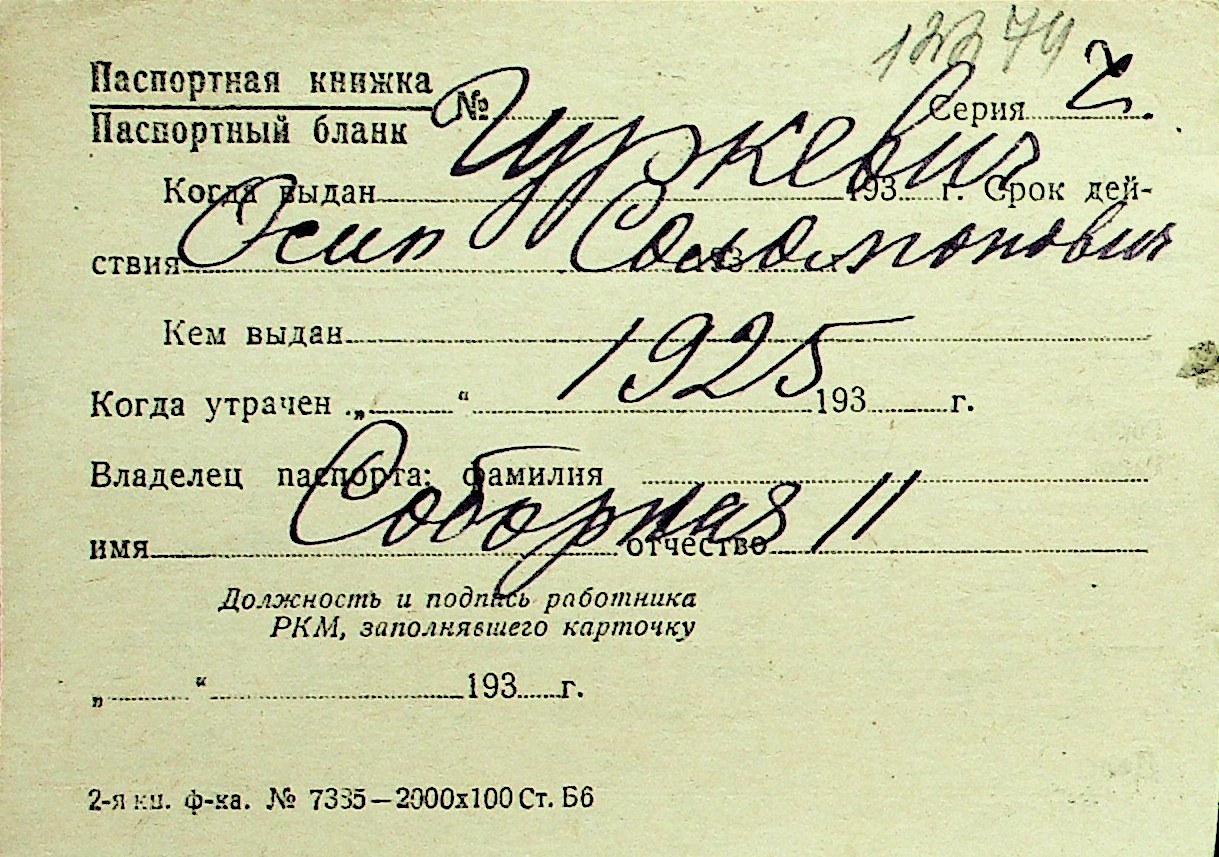 12279
Паспортная книжка
Паспортный бланк № Серия
Гуркевич
Когда выдан 193 г. Срок дей-
ствия 193
Осип Соломонович
Кем выдан
1925
Когда утрачен „ “ 193 г.
Владелец паспорта: фамилия
Соборная 11
имя отчество
Должность и подпись работника
РКМ, заполнявшего карточку
„ “ 193 г.
2-я кн. ф-ка. № 7385—2000х100 Ст. Б6